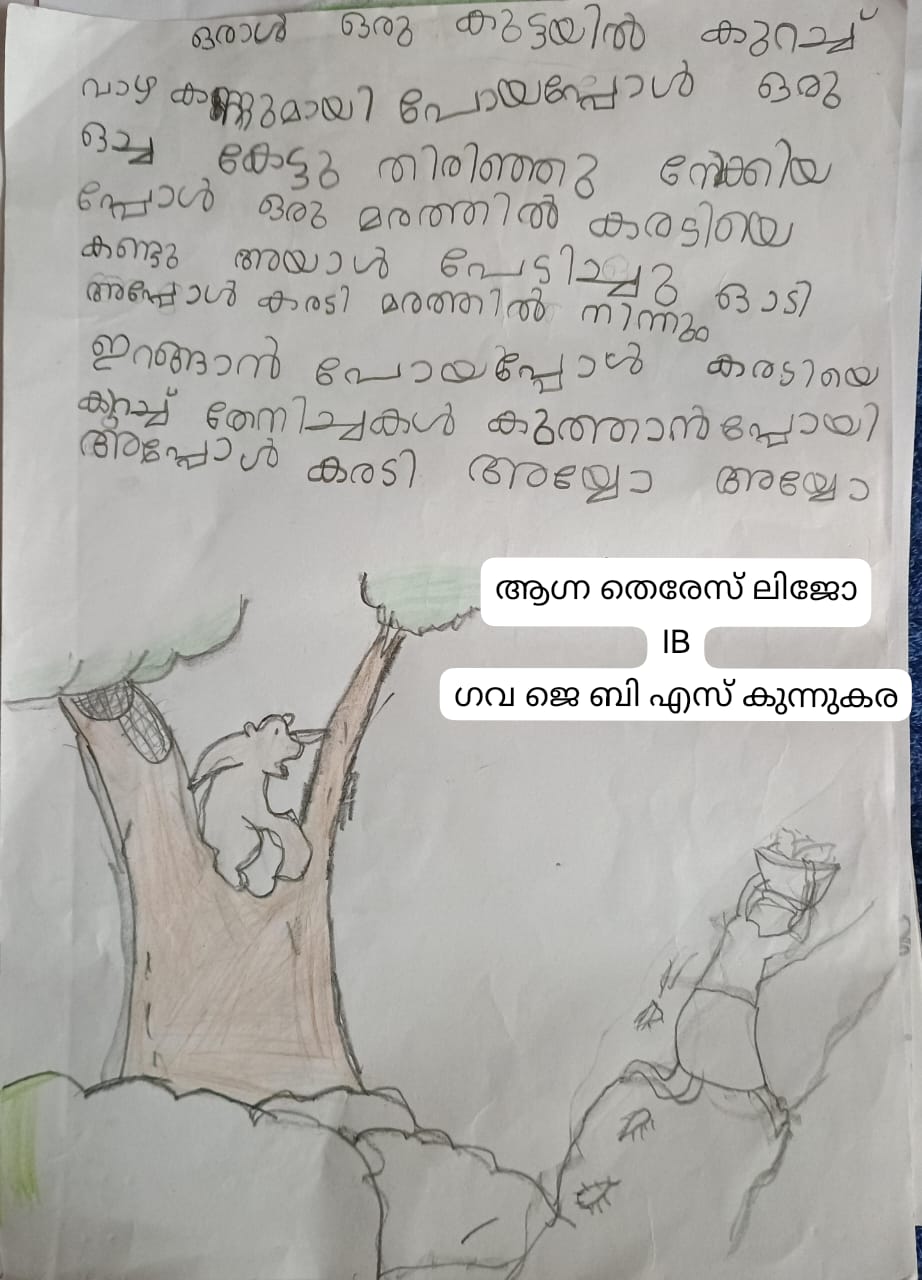 ഒരാൾ ഒരു കുട്ടയിൽ കുറച്ച്
വാഴ കണ്ണുമായി പോയപ്പോൾ ഒരു
ഒച്ച കേട്ടു തിരിഞ്ഞു നോക്കിയ
പ്പോൾ ഒരു മരത്തിൽ കരടിയെ
കണ്ടു അയാൾ പേടിച്ചു ഓടി
അപ്പോൾ കരടി മരത്തിൽ നിന്നും
ഇറങ്ങാൻ പോയപ്പോൾ കരടിയെ
കുറച്ച് തേനിച്ചകൾ കുത്താൻപ്പോയി
അപ്പോൾ കരടി അയ്യോ അയ്യോ
ആഗ്ന തെരേസ് ലിജോ
IB
ഗവ ജെ ബി എസ് കുന്നുകര